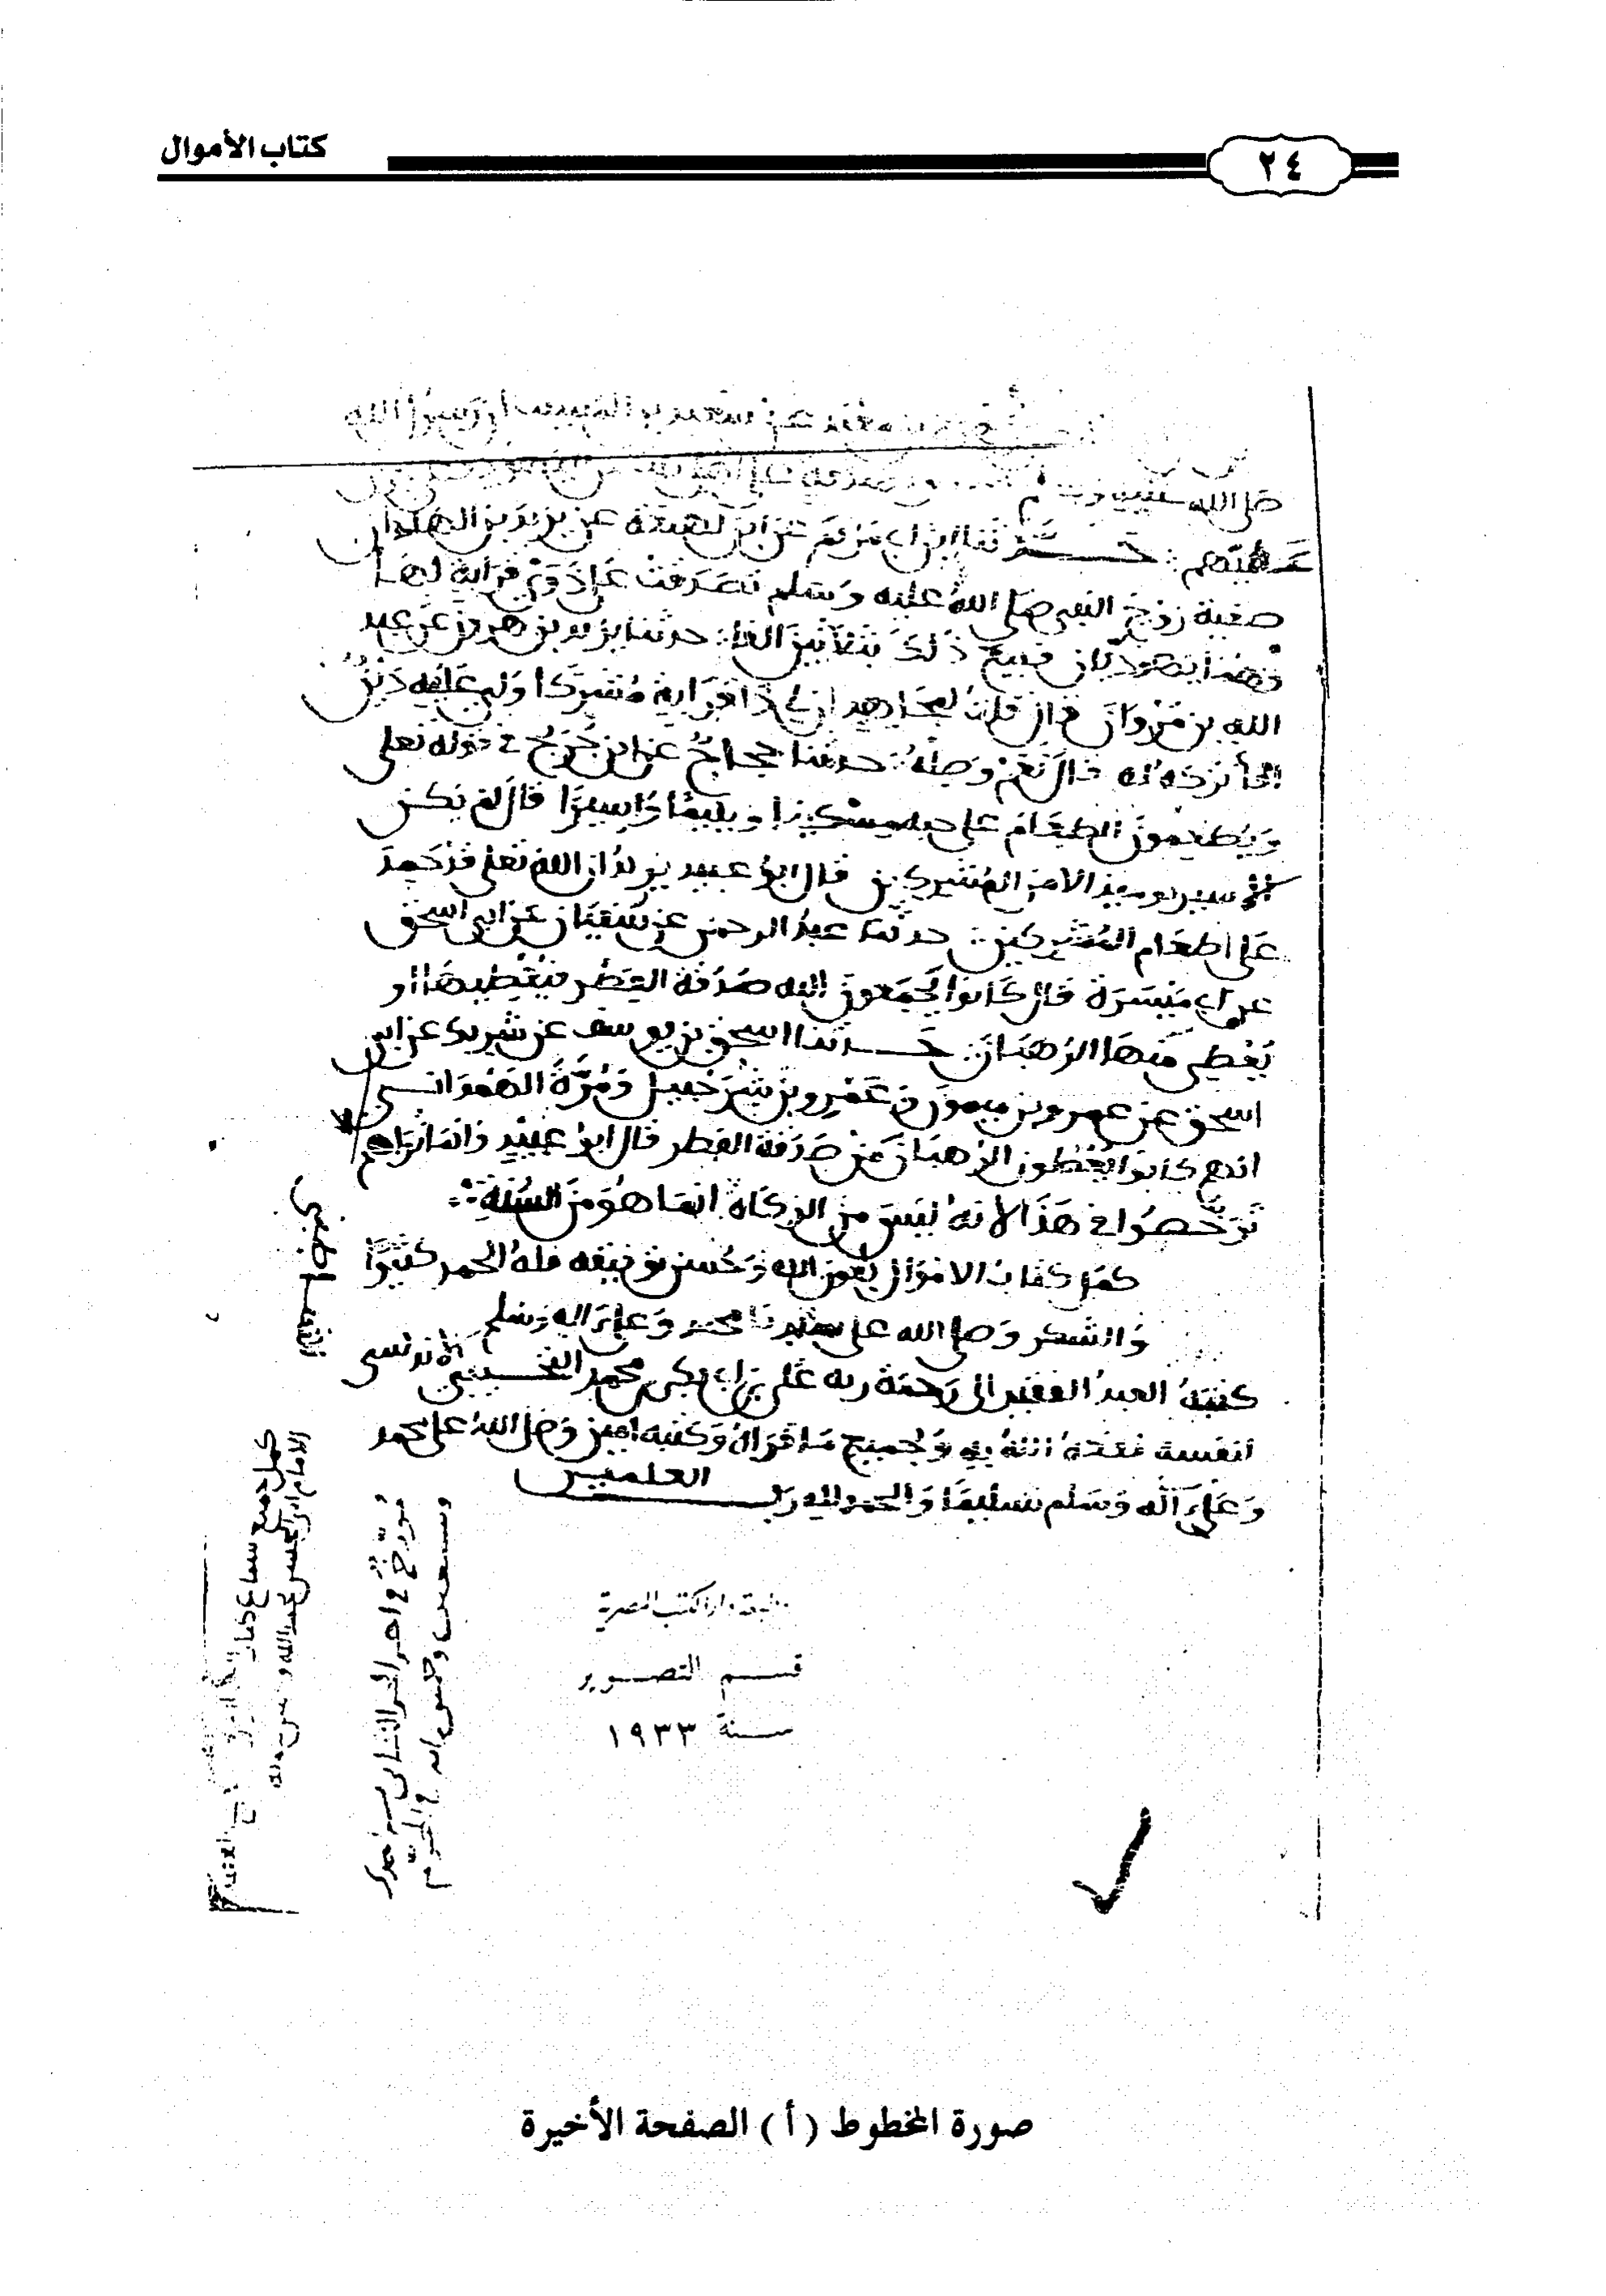 كتاب الأموال
٢٤
عن سعيد بن المسيب ان رسول الله
صلى الله عليه وسلم
عليهم حدثنا ابن ابي مريم عن ابن لهيعة عن يزيد بن الهاد ان
صفية زوج النبي صلى الله عليه وسلم تصدقت على ذوي قرابة لها
فهما يهوديان فبيع ذلك بثلاثين الفا حدثنا يزيد بن هرون عن عبد
الله بن مروان قال قلت لمجاهد ان لي ذا قرابة مشركا ولي عليه دين
أأتركه له قال نعم وصله حدثنا حجاج عن ابن جريج في قوله تعلى
ويطعمون الطعام على حبه مسكينا ويتيما واسيرا قال لم يكن
الاسير يوميذ الا من المشركين قال ابو عبيد يريد ان الله تعلى قد حمد
على اطعام المشركين حدثنا عبد الرحمن عن سفيان عن ابي اسحق
عن ابي ميسرة قال كانوا يجمعون اليه صدقة الفطر فيعطيها او
يعطي منها الرهبان حدثنا اسحق بن يوسف عن شريك عن ابي
اسحق عن عمرو بن ميمون وعمرو بن شرحبيل ومرة الهمداني
انهم كانوا يعطون الرهبان من صدقة الفطر قال ابو عبيد وانما نراهم
ترخصوا في هذا لانه ليس من الزكاة انما هو من السنة
كمل كتاب الاموال بعون الله وحسن توفيقه فله الحمد كثيرا
والشكر وصلى الله على سيدنا محمد وعلى آله وسلم
كتبه العبد الفقير الى رحمة ربه علي بن ابي بكر بن محمد التجيبي الاندلسي
لنفسه نفعه الله به وبجميع ما قراه وكتبه امين وصلى الله على محمد
وعلى آله وسلم تسليما والحمد لله رب العلمين
كمل جميع سماع كتاب
الامام ابي الحسن عبد الله
دار الكتب المصرية
قسم التصوير
سنة ١٩٣٣
صورة المخطوط (أ) الصفحة الأخيرة